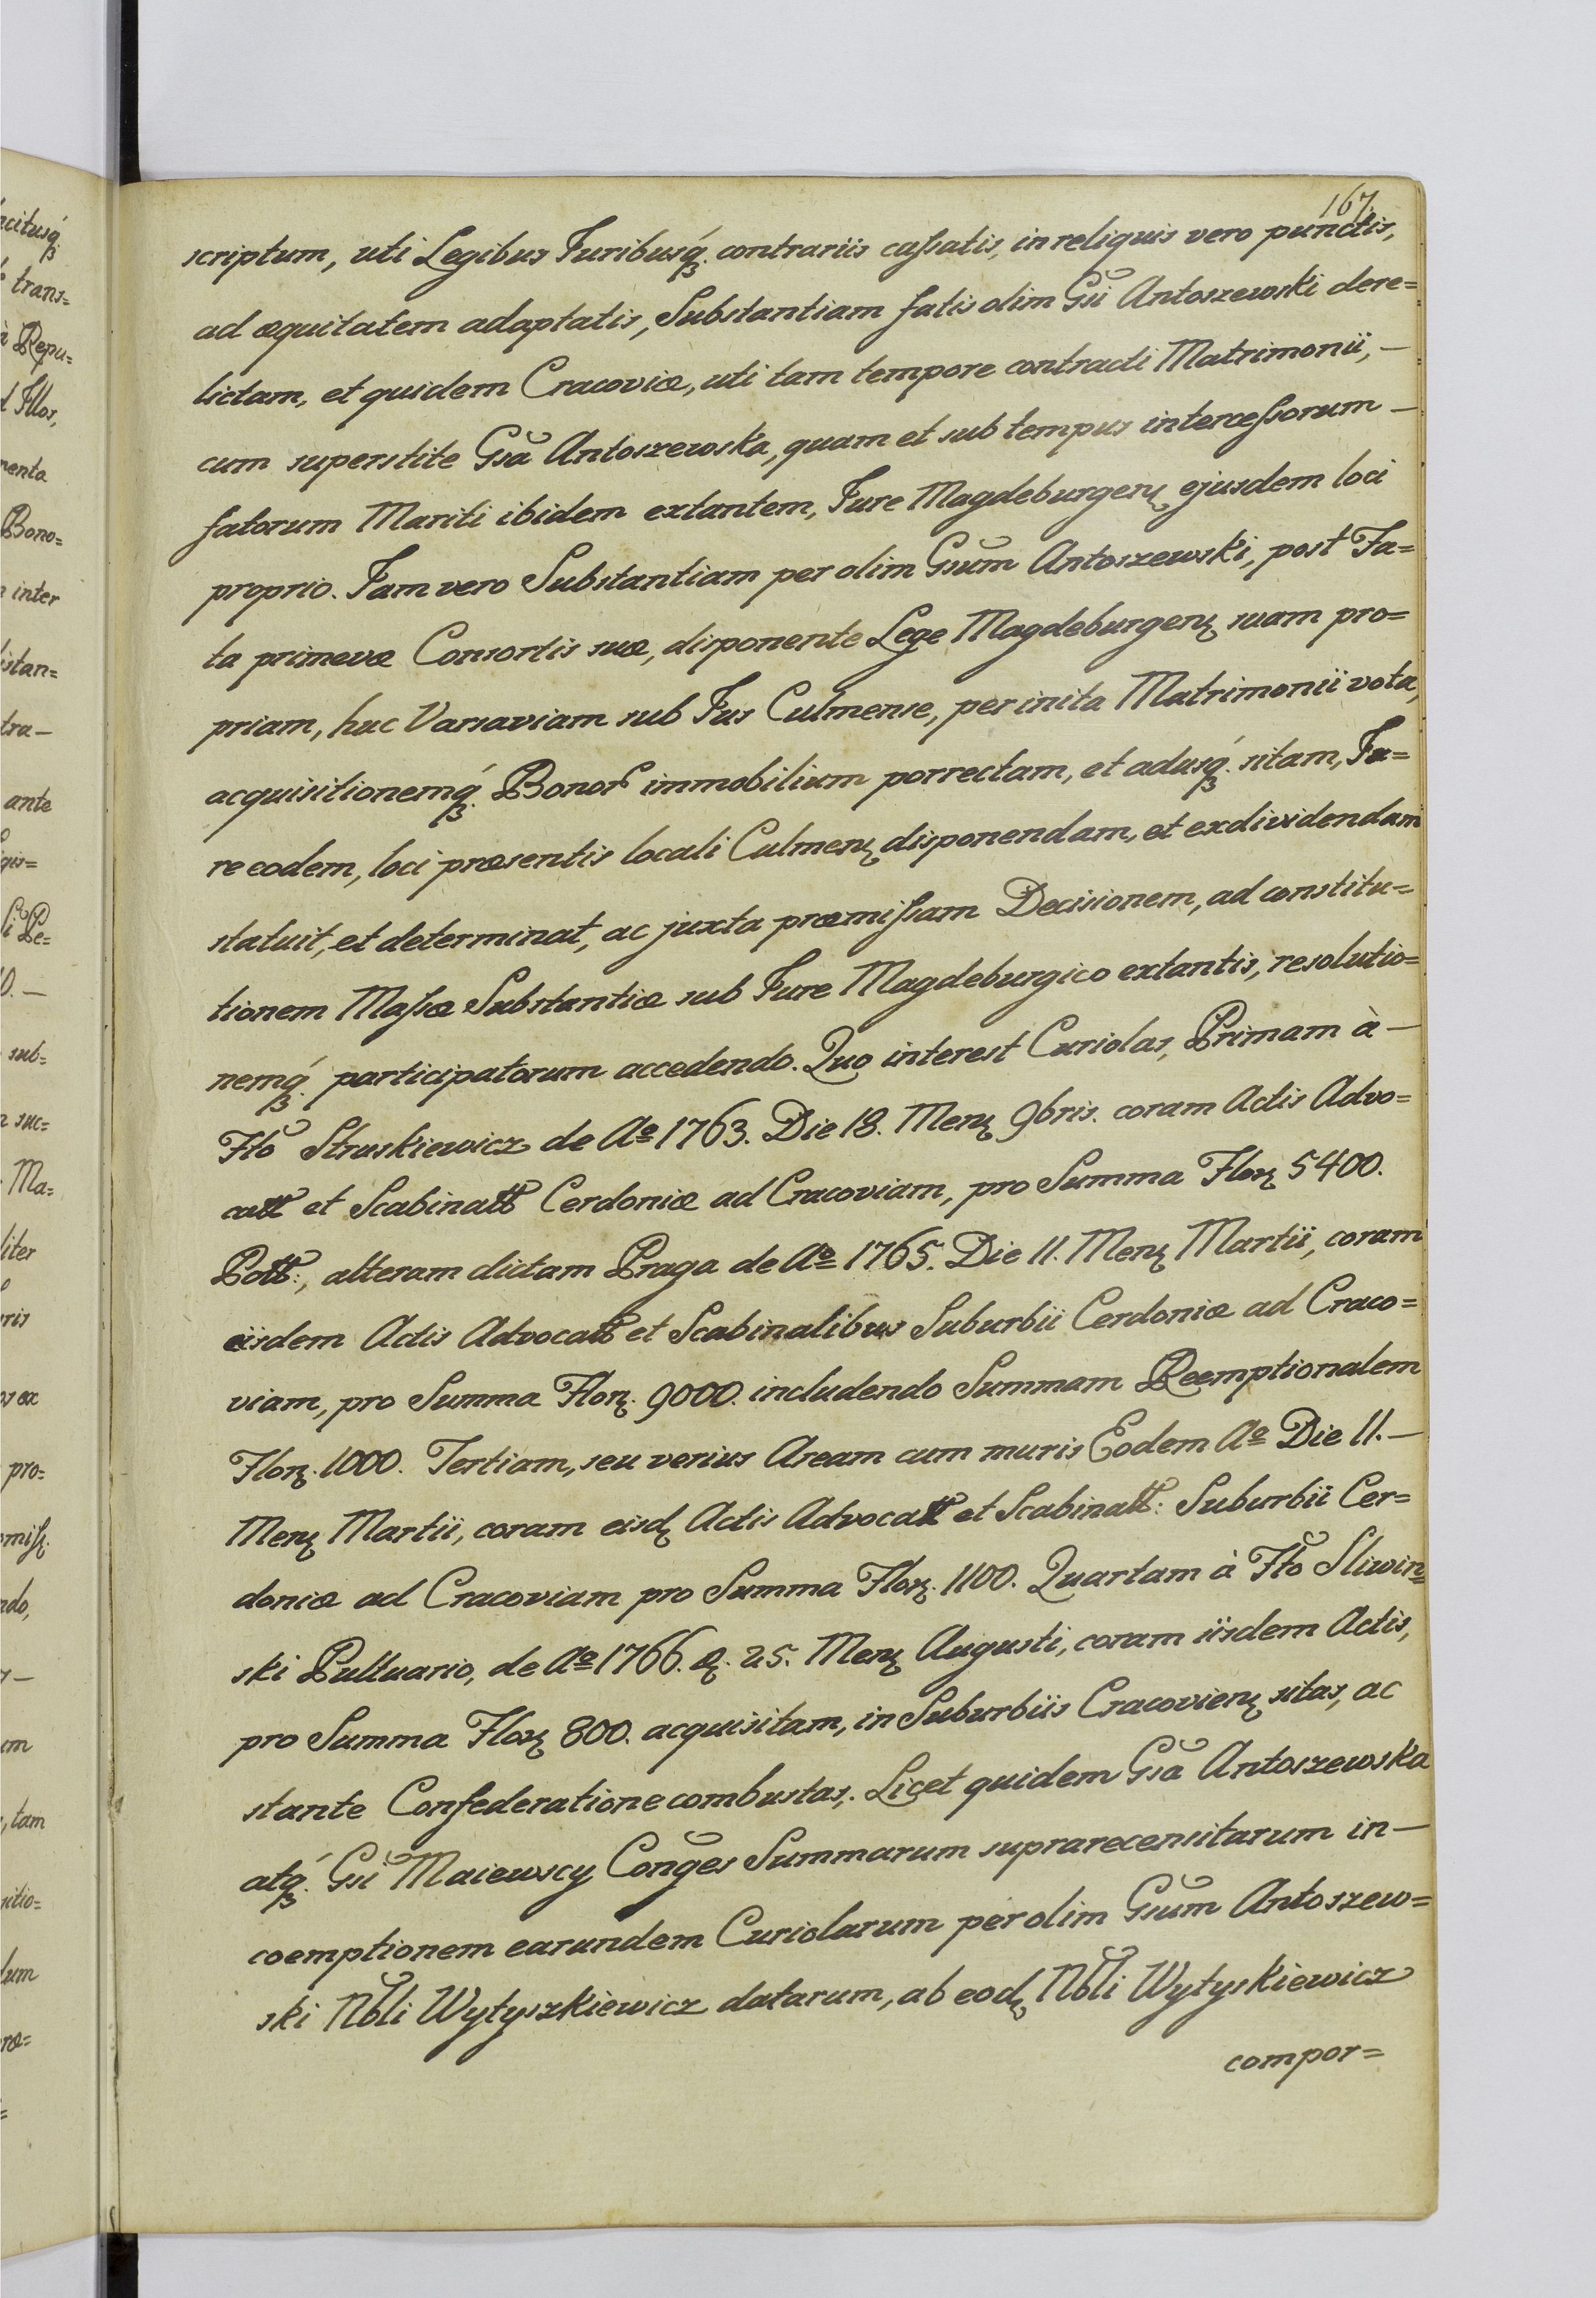 167.
scriptum, uti Legibus Juribusq́ꝫ. contrariis caſsatis, in reliquis vero punctis,
ad æquitatem adaptatis, Substantiam fatis olim Gsi Antoszewski dere=
lictam, et quidem Cracoviæ, uti tam tempore contracti Matrimonii, —
cum superstite Gsa Antoszewska, quam et sub tempus interceſsorum —
fatorum Mariti ibidem extantem, Jure Magdeburgenꝫ ejusdem loci
proprio. Jam vero Substantiam per olim Gsum Antoszewski, post Fa=
ta primevæ Consortis suæ, disponente Lege Magdeburgenꝫ suam pro=
priam, huc Varsaviam sub Jus Culmense, per inita Matrimonii vota,
acquisitionemq́ꝫ. Bonor immobilium porrectam, et adusq́ꝫ. sitam, Ju=
re eodem, loci præsentis locali Culmenꝫ disponendam, et exdividendam
statuit, et determinat, ac juxta præmiſsam Decisionem, ad constitu=
tionem Maſsæ Substantiæ sub Jure Magdeburgico extantis, resolutio=
nemq́ꝫ. participatorum accedendo. Quo interest Curiolas, Primam à —
Fto Struskiewicz de Aº 1763. Die 18. Menꝫ 9bris. coram Actis Advo=
catt et Scabinatt Cerdoniæ ad Cracoviam, pro Summa Florꝫ 5400.
Pott:, alteram dictam Praga de Aº 1765. Die 11. Menꝫ Martii, coram
eisdem Actis Advocatt et Scabinalibus Suburbii Cerdoniæ ad Craco=
viam, pro Summa Florꝫ. 9000. includendo Summam Reemptionalem
Florꝫ. 1000. Tertiam, seu verius Aream cum muris Eodem Aº Die 11. —
Menꝫ Martii, coram eisdꝫ Actis Advocatt et Scabinatt: Suburbii Cer=
doniæ ad Cracoviam pro Summa Florꝫ. 1100. Quartam à Fto Sliwin=
ski Pultuario, de Aº 1766. d. 25. Menꝫ Augusti, coram iisdem Actis,
pro Summa Florꝫ 800. acquisitam, in Suburbiis Cracovienꝫ sitas, ac
stante Confederatione combustas,. Licet quidem Gsa Antoszewska
atq́ꝫ. Gsi Maiewscy Conges Summarum suprarecensitarum in —
coemptionem earundem Curiolarum per olim Gsum Antoszew=
ski Nbli Wytyszkiewicz datarum, ab eodꝫ Nbli Wytyskiewicz
compor=